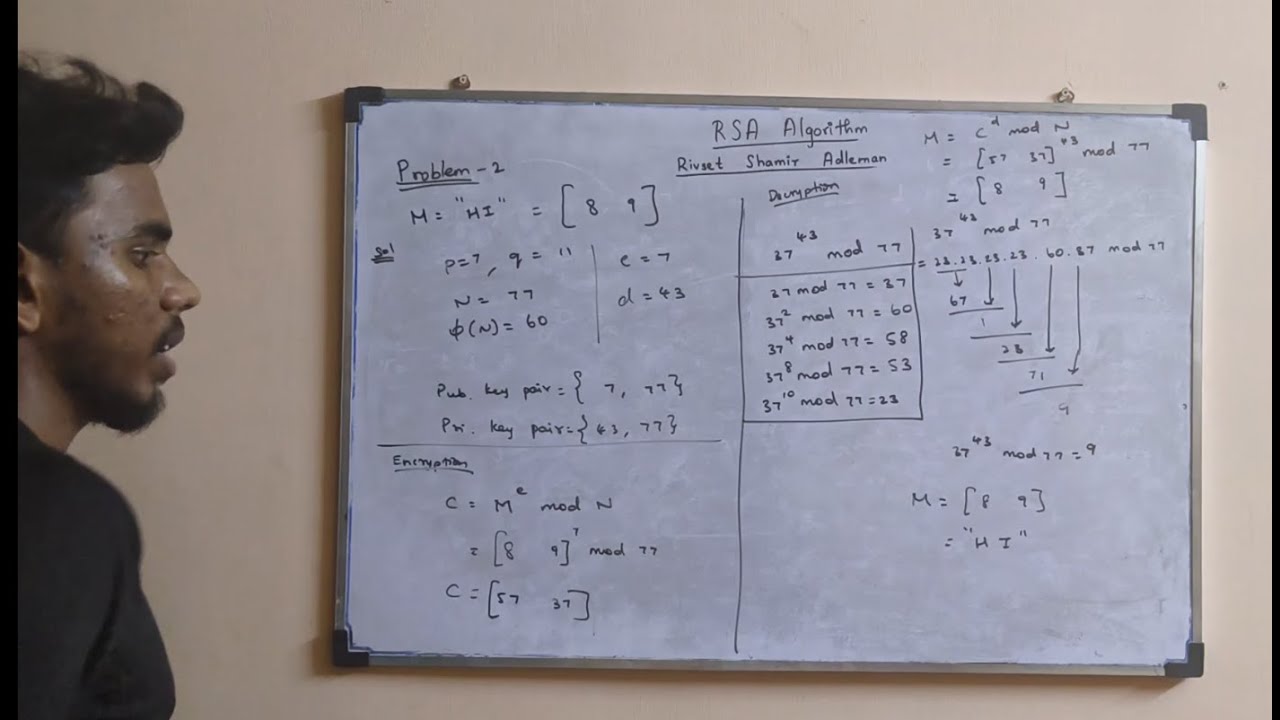 RSA Algorithm
Rivset Shamir Adleman
Problem - 2
M = "HI" = [8 9]
Sol
p=7, q = 11
N = 77
φ(N) = 60
e = 7
d = 43
Pub. key pair = {7, 77}
Pri. key pair = {43, 77}
Encryption
C = M^e mod N
= [8 9]^7 mod 77
C = [57 37]
Decryption
37^43 mod 77
37 mod 77 = 37
37^2 mod 77 = 60
37^4 mod 77 = 58
37^8 mod 77 = 53
37^10 mod 77 = 23
M = C^d mod N
= [57 37]^43 mod 77
= [8 9]
37^43 mod 77
= 23.23.23.23.60.37 mod 77
67
1
23
71
9
37^43 mod 77 = 9
M = [8 9]
= "HI"